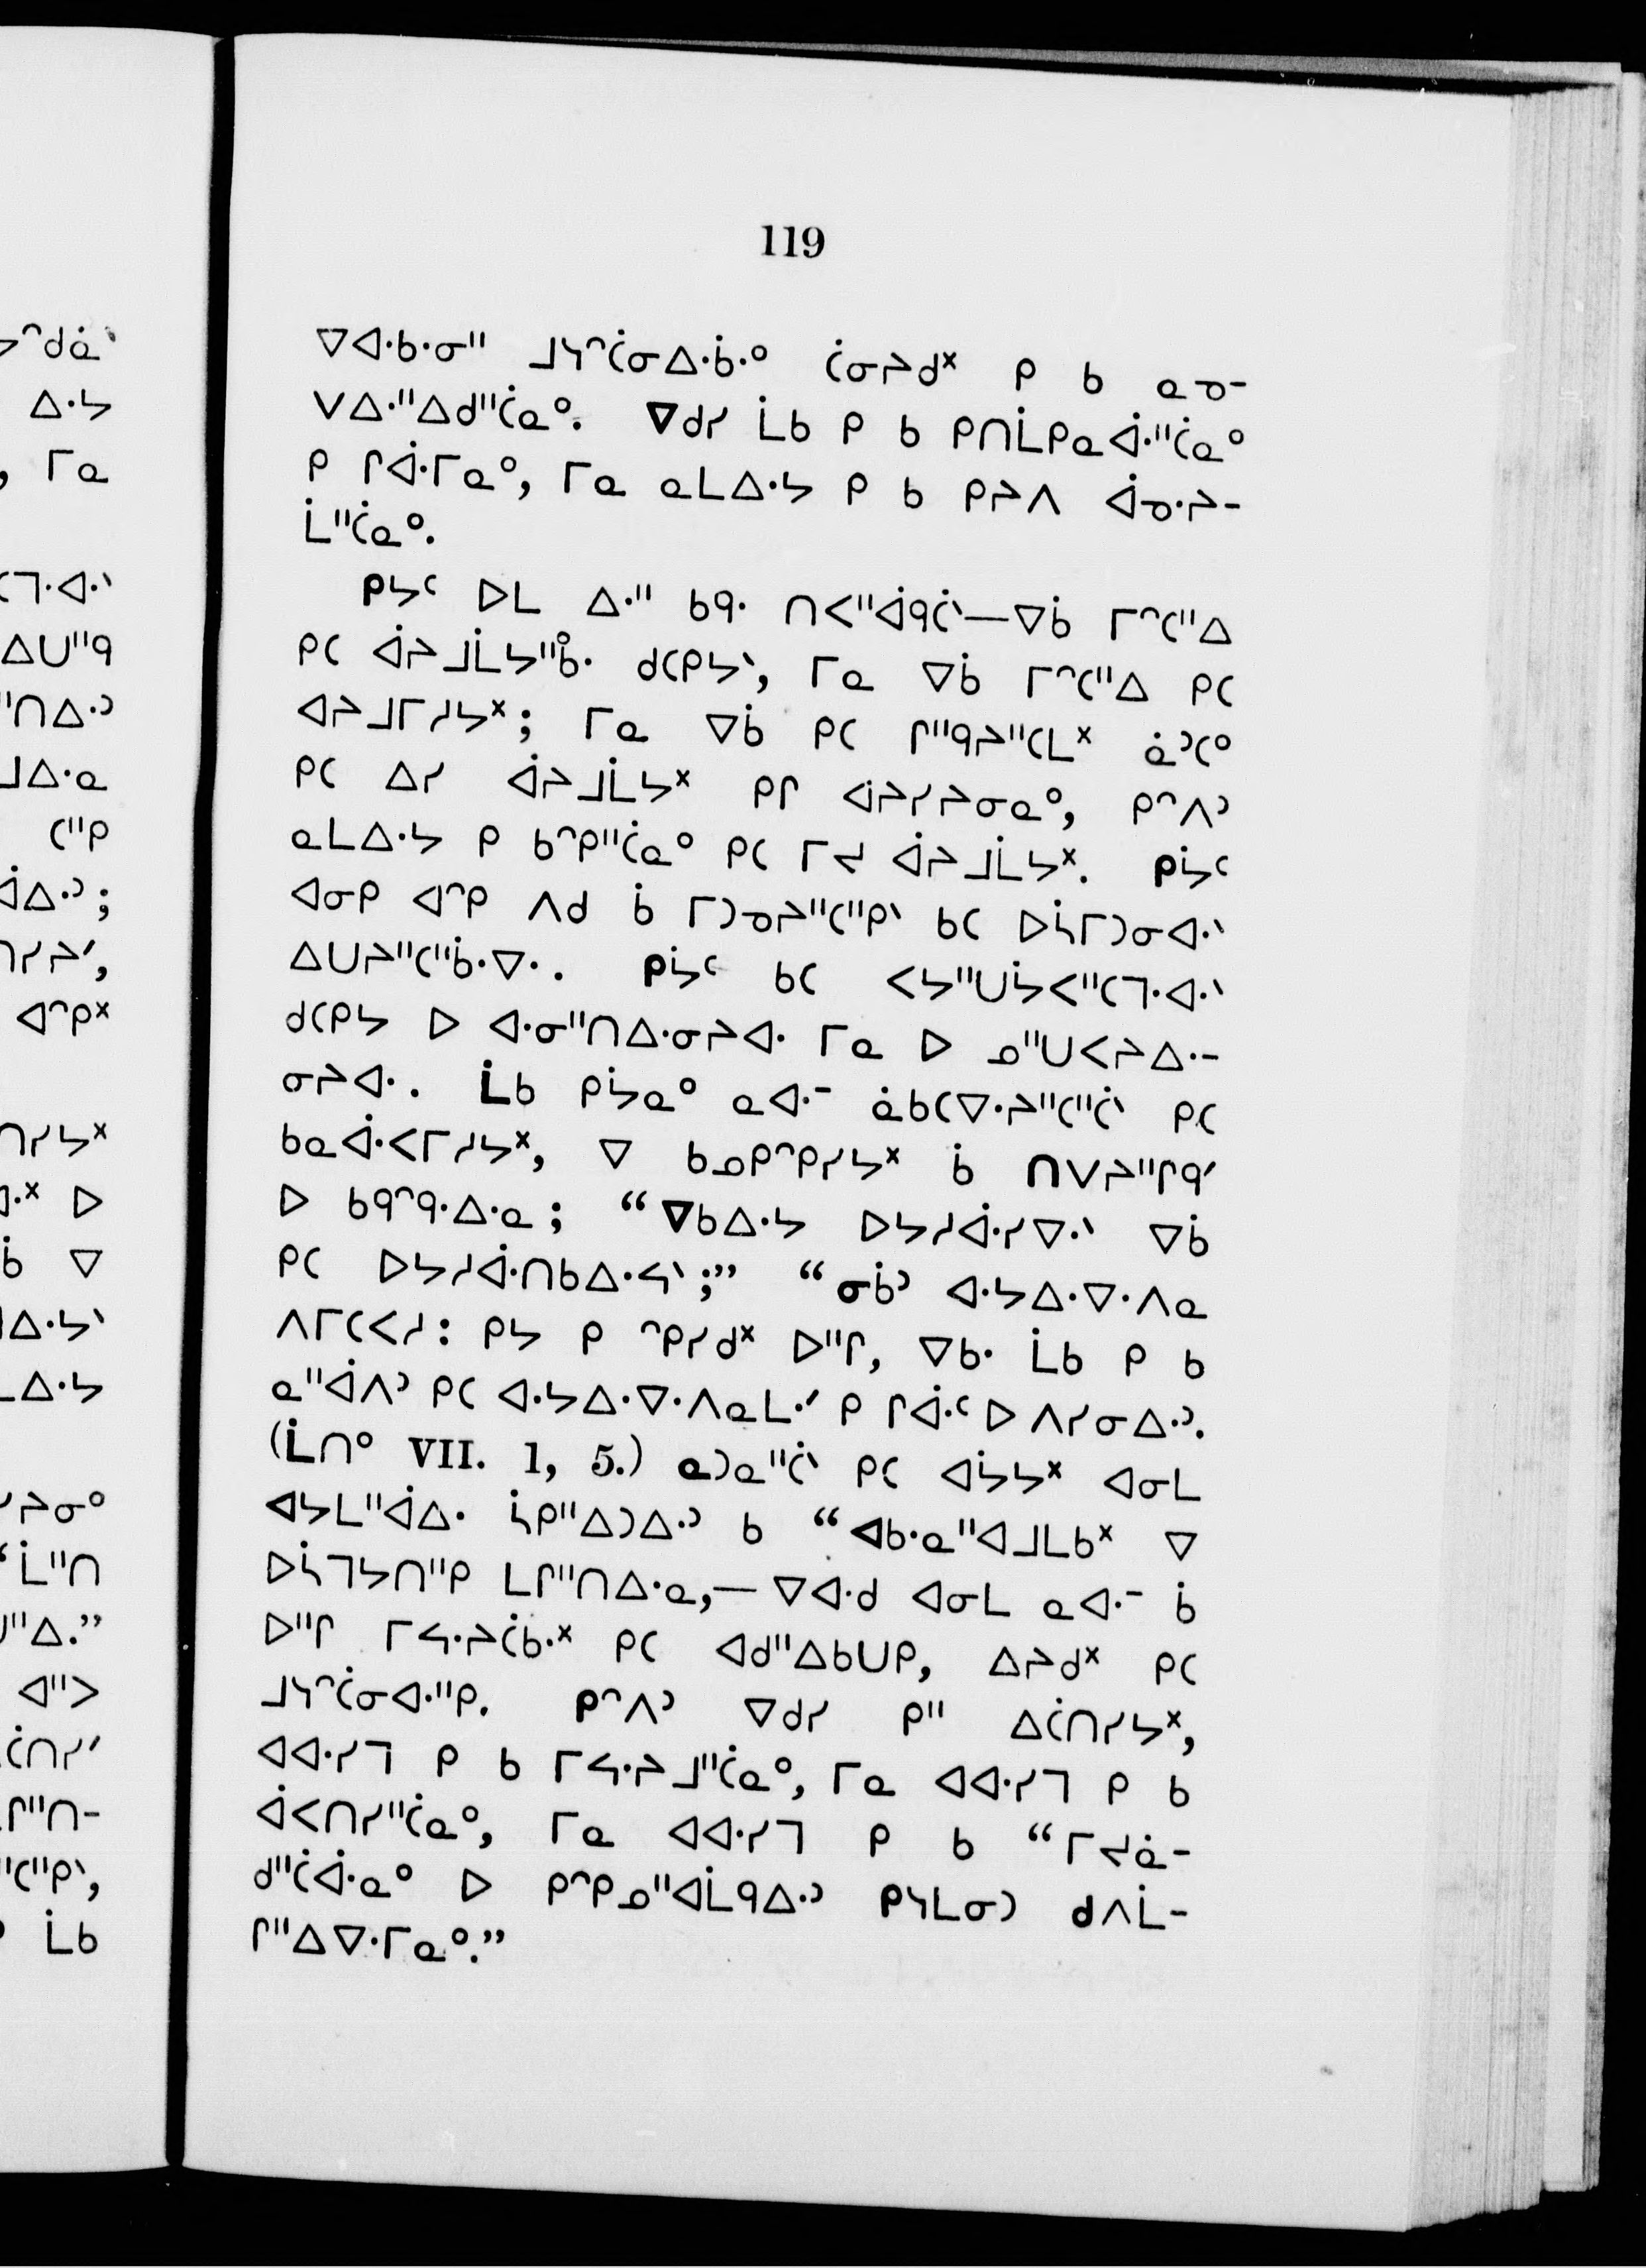 119
ᐁᐊᐧᑲᐧᓂᐦ ᒧᓴᐢᑖᓂᐃᐧᑳᐧᐤ ᑖᓂᔨᑯᕽ ᑭ ᑲ ᓇᓀ-
ᐯᐃᐧᐦᐃᑯᐦᑖᓇᐤ. ᐁᑯᓯ ᒫᑲ ᑭ ᑲ ᑭᑎᒫᑭᓇᐚᐦᑖᓇᐤ
ᑭ ᒋᐚᒥᓇᐤ, ᒥᓇ ᓇᒪᐃᐧᔭ ᑭ ᑲ ᑭᔨᐱ ᐋᓀᐧᔨ-
ᒫᐦᑖᓇᐤ.
ᑭᔭᑦ ᐅᒪ ᐃᐧᐦ ᑲᑫᐧ ᑎᐸᐦᐋᑫᑖᐠ—ᐁᑳ ᒥᐢᑕᐦᐃ
ᑭᑕ ᐋᔨᒧᒫᔭᐦᑳᐧ ᑯᑕᑭᔭᐠ, ᒥᓇ ᐁᑳ ᒥᐢᑕᐦᐃ ᑭᑕ
ᐊᔨᒧᒥᓱᔭᕽ; ᒥᓇ ᐁᑳ ᑭᑕ ᒋᐦᑫᔨᐦᑕᒪᕽ ᓈᐣᑕᐤ
ᑭᑕ ᐃᓯ ᐋᔨᒧᒫᔭᕽ ᑭᒋ ᐊᔨᓯᔨᓂᓇᐤ, ᑭᐢᐱᐣ
ᓇᒪᐃᐧᔭ ᑭ ᑲᐢᑭᐦᑖᓇᐤ ᑭᑕ ᒥᔪ ᐋᔨᒧᒫᔭᕽ. ᑭᔮᑦ
ᐊᓂᑭ ᐊᐢᑭ ᐱᑯ ᑳ ᒥᑐᓀᔨᐦᑕᐦᑭᐠ ᑲᑕ ᐅᓵᒥᑐᓂᐊᐧᐠ
ᐃᑌᔨᐦᑕᐦᑳᐧᐁᐧ. ᑭᔮᑦ ᑲᑕ ᐸᔭᐦᑌᔮᐸᐦᑕᒣᐧᐊᐧᐠ
ᑯᑕᑭᔭ ᐅ ᐊᐧᓂᐦᑎᐃᐧᓂᔨᐊᐧ ᒥᓇ ᐅ ᓄᐦᑌᐸᔨᐃᐧ-
ᓂᔨᐊᐧ. ᒫᑲ ᑭᔮᓇᐤ ᓇᐊᐧᐨ ᓈᑲᑕᐁᐧᔨᐦᑕᐦᑖᐠ ᑭᑕ
ᑲᓇᐚᐸᒥᓱᔭᕽ, ᐁ ᑲᓄᑭᐢᑭᓯᔭᕽ ᑳ ᑎᐯᔨᐦᒋᑫᐟ
ᐅ ᑲᑫᐢᑫᐧᐃᐧᓇ; “ᐁᑲᐃᐧᔭ ᐅᔭᓱᐚᓯᐁᐧᐠ ᐁᑳ
ᑭᑕ ᐅᔭᓱᐚᑎᑲᐃᐧᔦᐠ;” “ᓂᑳᐣ ᐊᐧᔭᐃᐧᐁᐧᐱᓇ
ᐱᒥᑕᐸᓱ: ᑭᔭ ᑭ ᐢᑭᓯᑯᕽ ᐅᐦᒋ, ᐁᑲᐧ ᒫᑲ ᑭ ᑲ
ᓇᐦᐋᐱᐣ ᑭᑕ ᐊᐧᔭᐃᐧᐁᐧᐱᓇᒪᐧᐟ ᑭ ᒋᐚᑦ ᐅ ᐱᓯᓂᐃᐧᐣ.
(ᒫᑎᐤ VII. 1, 5.) ᓇᑐᓇᐦᑖᐠ ᑭᑕ ᐊᔮᔭᕽ ᐊᓂᒪ
ᐊᔭᒪᐦᐋᐃᐧ ᓵᑭᐦᐃᑐᐃᐧᐣ ᑲ “ᐊᑲᐧᓇᐦᐊᒧᒪᑲᕽ ᐁ
ᐅᓵᒣᔭᑎᐦᑭ ᒪᒋᐦᑎᐃᐧᓇ,— ᐁᐊᐧᑯ ᐊᓂᒪ ᓇᐊᐧᐨ ᑳ
ᐅᐦᒋ ᒥᔦᐧᔨᑖᑲᐧᕽ ᑭᑕ ᐊᑯᐦᐃᑲᑌᑭ, ᐃᔨᑯᕽ ᑭᑕ
ᒧᓴᐢᑖᓂᐊᐧᐦᑭ. ᑭᐢᐱᐣ ᐁᑯᓯ ᑭᐦ ᐃᑖᑎᓯᔭᕽ,
ᐊᐊᐧᓯᒣ ᑭ ᑲ ᒥᔦᐧᔨᒧᐦᑖᓇᐤ, ᒥᓇ ᐊᐊᐧᓯᒣ ᑭ ᑲ
ᐋᐸᑎᓯᐦᑖᓇᐤ, ᒥᓇ ᐊᐊᐧᓯᒣ ᑭ ᑲ “ᒥᔪᓈ-
ᑯᐦᑖᐚᓇᐤ ᐅ ᑭᐢᑭᓄᐦᐊᒫᑫᐃᐧᐣ ᑭᓴᒪᓂᑐ ᑯᐱᒫ-
ᒋᐦᐃᐁᐧᒥᓇᐤ.”